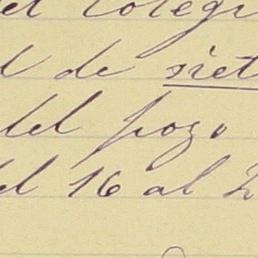 el colegi
l de siet
del pozo
del 16 al 2